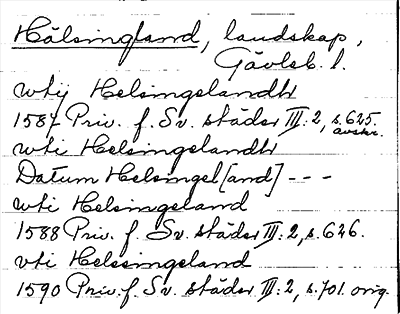 Hälsingland, landskap,
Gävleb. l.
vthj Helsingelandh
1587 Priv. f. Sv. städer III:2, s. 625.
avskr.
vthi Helsingelandh
Datum Helsingel[and] - - -
vthi Helsingeland
1588 Priv. f. Sv. städer III:2, s. 626.
vthi Helssingeland
1590 Priv. f. Sv. städer III:2, s. 701. orig.